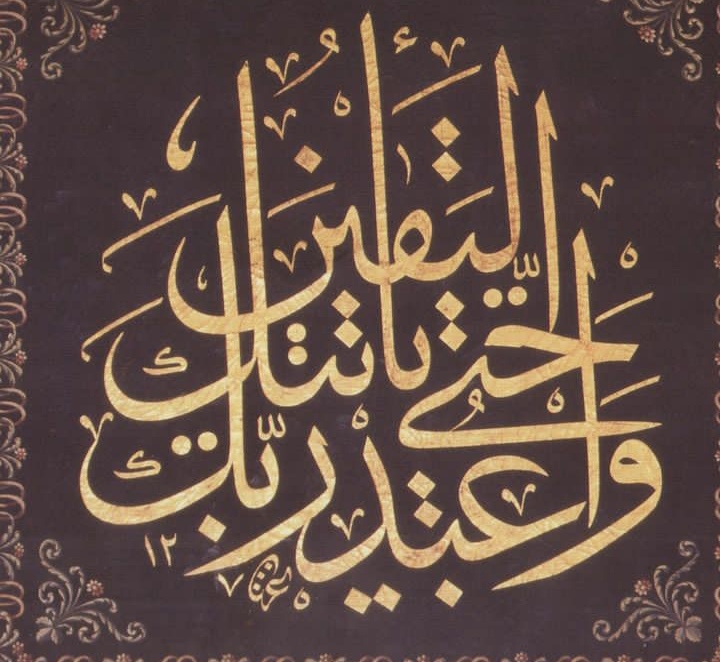 وَاعْبُدْ رَبَّكَ
حَتّٰى يَأْتِيَكَ
الْيَقِينُ